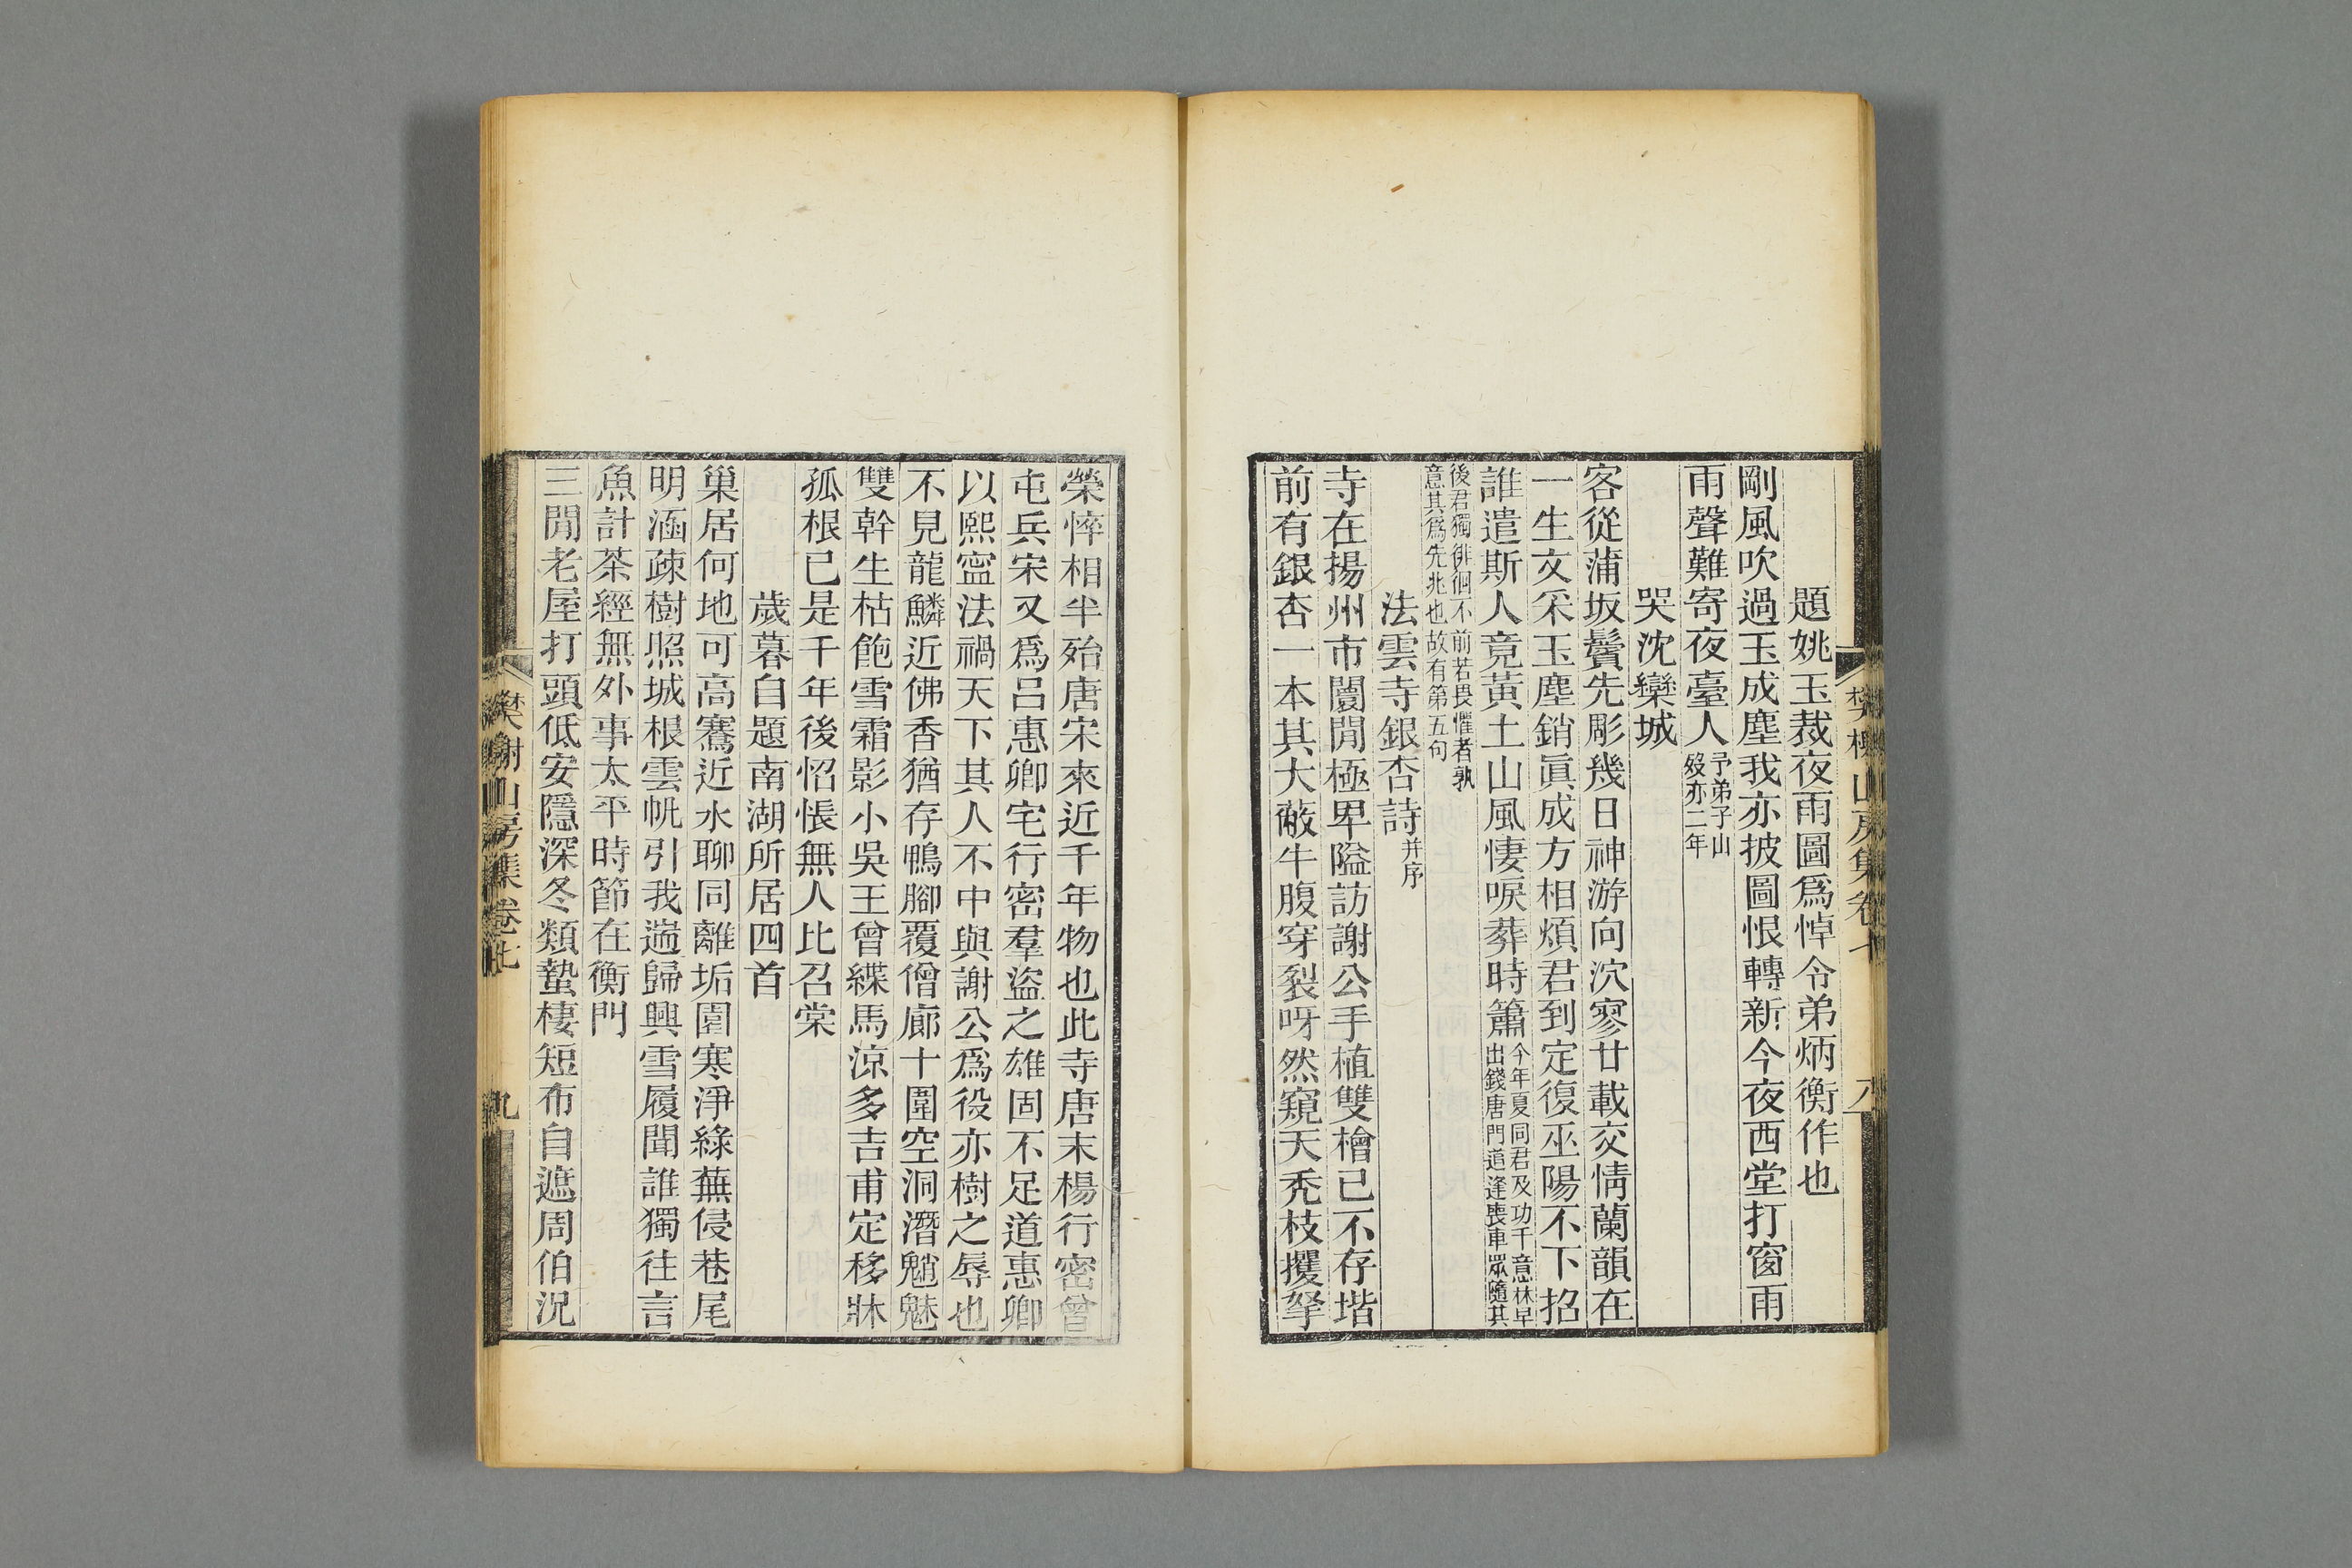 題姚玉裁夜雨圖爲悼令弟炳衡作也
剛風吹過玉成塵我亦披圖恨轉新今夜西堂打窗雨
雨聲難寄夜臺人予弟子山歿亦二年
哭沈欒城
客從蒲坂鬢先彫幾日神游向泬寥廿載交情蘭韻在
一生文采玉塵銷眞成方相煩君到定復巫陽不下招
誰遣斯人竟黃土山風悽唳葬時簫今年夏同君及功千意林早出錢唐門道逢喪車眾隨其
後君獨徘徊不前若畏懼者孰意其爲先兆也故有第五句
法雲寺銀杏詩并序
寺在揚州市闤閒極卑隘訪謝公手植雙檜已不存堦
前有銀杏一本其大蔽牛腹穿裂呀然窺天禿枝攫拏
樊榭山房集卷七
八
榮悴相半殆唐宋來近千年物也此寺唐末楊行密曾
屯兵宋又爲呂惠卿宅行密羣盜之雄固不足道惠卿
以熙寍法禍天下其人不中與謝公爲役亦樹之辱也
不見龍鱗近佛香猶存鴨腳覆僧廊十圍空洞潛魈魅
雙幹生枯飽雪霜影小吳王曾緤馬涼多吉甫定移牀
孤根已是千年後怊悵無人比召棠
歲暮自題南湖所居四首
巢居何地可高騫近水聊同離垢園寒淨綠蕪侵巷尾
明涵疎樹照城根雲帆引我遄歸興雪履聞誰獨往言
魚計茶經無外事太平時節在衡門
三閒老屋打頭低安隱深冬類蟄棲短布自遮周伯況
樊榭山房集卷七
九